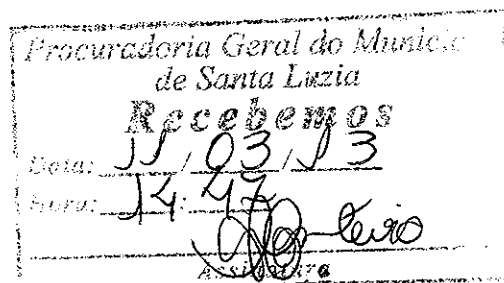 Procuradoria Geral do
de Santa Luzia
Recebemos
Data: 11 / 03 / 13
Hora: 14:47
Assinatura